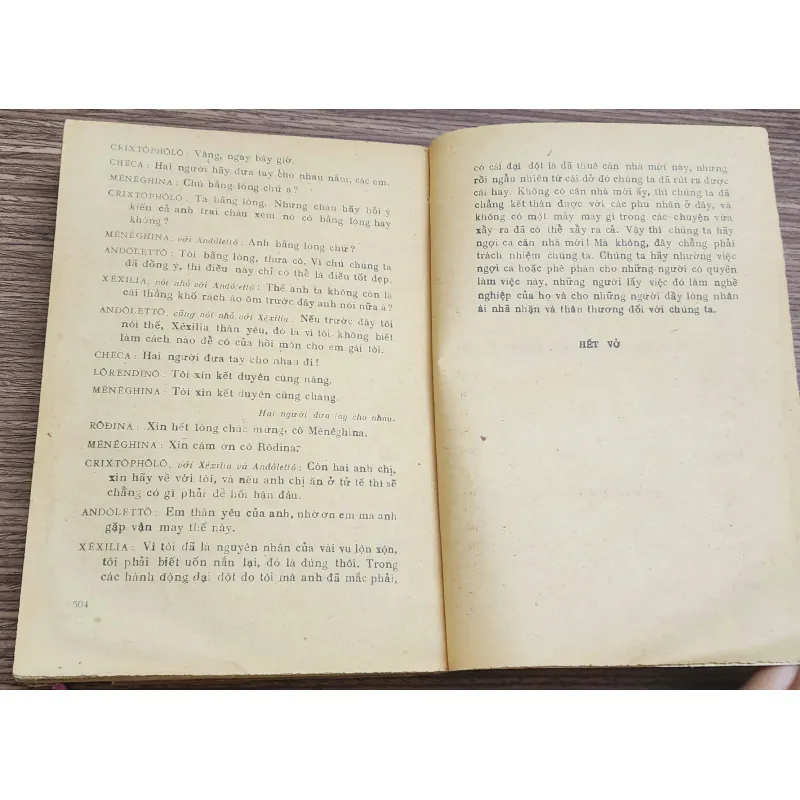 CRIXTÔPHÔLÔ: Vâng, ngay bây giờ.
CHÊCA: Hai người hãy đưa tay cho nhau nắm, các em.
MÊNÊGHINA: Chú bằng lòng chứ ạ?
CRIXTÔPHÔLÔ: Ta bằng lòng. Nhưng cháu hãy hỏi ý
kiến cả anh trai cháu xem nó có bằng lòng hay
không?
MÊNÊGHINA, với Anđôlettô: Anh bằng lòng chứ?
ANĐÔLETTÔ: Tôi bằng lòng, thưa cô. Vì chú chúng ta
đã đồng ý, thì điều này chỉ có thể là điều tốt đẹp.
XÊXILIA, nói nhỏ với Anđôlettô: Thế anh ta không còn là
cái thằng khố rách áo ôm trước đây anh nói nữa à?
ANĐÔLETTÔ, cũng nói nhỏ với Xêxilia: Nếu trước đây tôi
nói thế, Xêxilia thân yêu, đó là vì tôi không biết
làm cách nào để có của hồi môn cho em gái tôi.
CHÊCA: Hai người đưa tay cho nhau đi!
LÔRENDINÔ: Tôi xin kết duyên cùng nàng.
MÊNÊGHINA: Tôi xin kết duyên cùng chàng.
Hai người đưa tay cho nhau.
RÔDINA: Xin hết lòng chúc mừng, cô Mênêghina.
MÊNÊGHINA: Xin cám ơn cô Rôdina.
CRIXTÔPHÔLÔ, với Xêxilia và Anđôlettô: Còn hai anh chị,
xin hãy về với tôi, và nếu anh chị ăn ở tử tế thì sẽ
chẳng có gì phải để hối hận đâu.
ANĐÔLETTÔ: Em thân yêu của anh, nhờ ơn em mà anh
gặp vận may thế này.
XÊXILIA: Vì tôi đã là nguyên nhân của vài vụ lộn xộn,
tôi phải biết uốn nắn lại, đó là đúng thôi. Trong
các hành động dại dột do tôi mà anh đã mắc phải,
504
có cái dại dột là đã thuê căn nhà mới này, nhưng
rồi ngẫu nhiên từ cái dở đó chúng ta đã rút ra được
cái hay. Không có căn nhà mới ấy, thì chúng ta đã
chẳng kết thân được với các phu nhân ở đây, và
không có một mảy may gì trong các chuyện vừa
xẩy ra đã có thể xẩy ra cả. Vậy thì chúng ta hãy
ngợi ca căn nhà mới! Mà không, đây chẳng phải
trách nhiệm chúng ta. Chúng ta hãy nhường việc
ngợi ca hoặc phê phán cho những người có quyền
làm việc này, những người lấy việc đó làm nghề
nghiệp của họ và cho những người đầy lòng nhân
ái nhã nhặn và thân thương đối với chúng ta.
HẾT VỞ